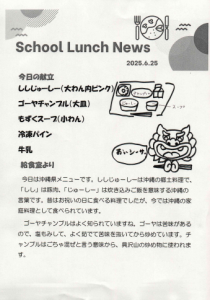 School Lunch News
2025.6.25
今日の献立
ししじゅーしー(大わん内ピンク)
ゴーヤチャンプル(大皿)
もずくスープ(小わん)
冷凍パイン
牛乳
給食室より
今日は沖縄県メニューです。ししじゅーしーは沖縄の郷土料理で、
「しし」は豚肉、「じゅーしー」は炊き込みご飯を意味する沖縄の
言葉です。昔はお祝いの日に食べる料理でしたが、今では沖縄の家
庭料理として食べられています。
ゴーヤチャンプルはよく知られていますね。ゴーヤは苦みがある
ので、塩もみして、よく茹でて苦味を抜いてから炒めています。チ
ャンプルはごちゃ混ぜと言う意味から、具沢山の炒め物に使われま
す。